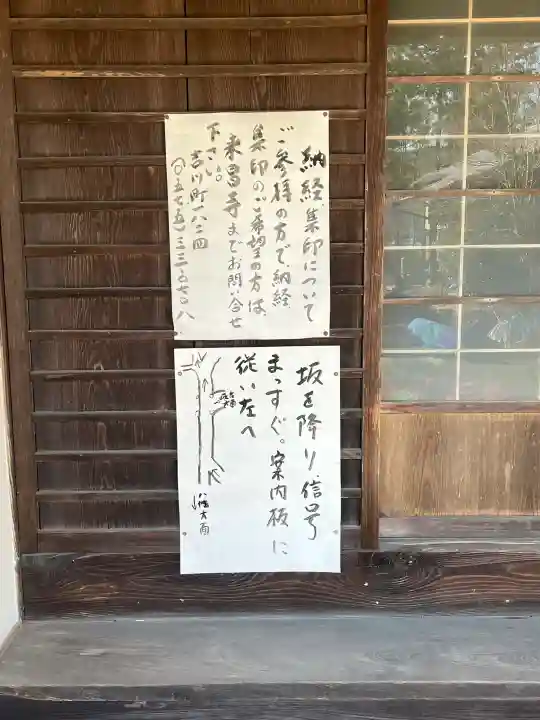 納経、集印について
ご参拝の方で、納経
集印のご希望の方は
来昌寺までお問い合せ
下さい。
吉川町一八二四
(〇五七五)三三-〇七〇八
坂を降り、信号
まっすぐ。案内板に
従い左へ